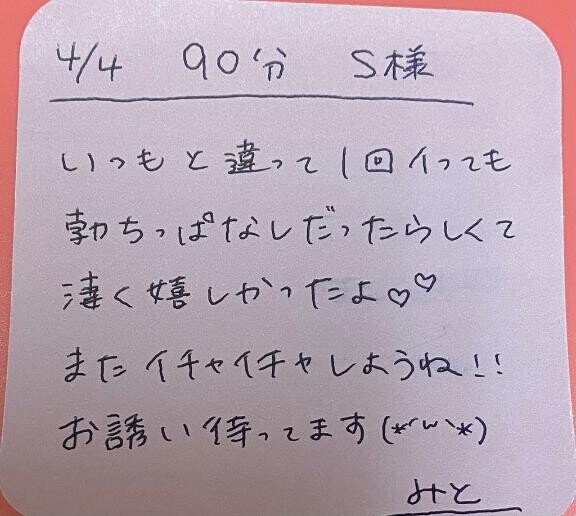 4/4 90分 S様
いつもと違って1回イっても
勃ちっぱなしだったらしくて
凄く嬉しかったよ♡♡
またイチャイチャしようね!!
お誘い待ってます(*´ω`*)
みと